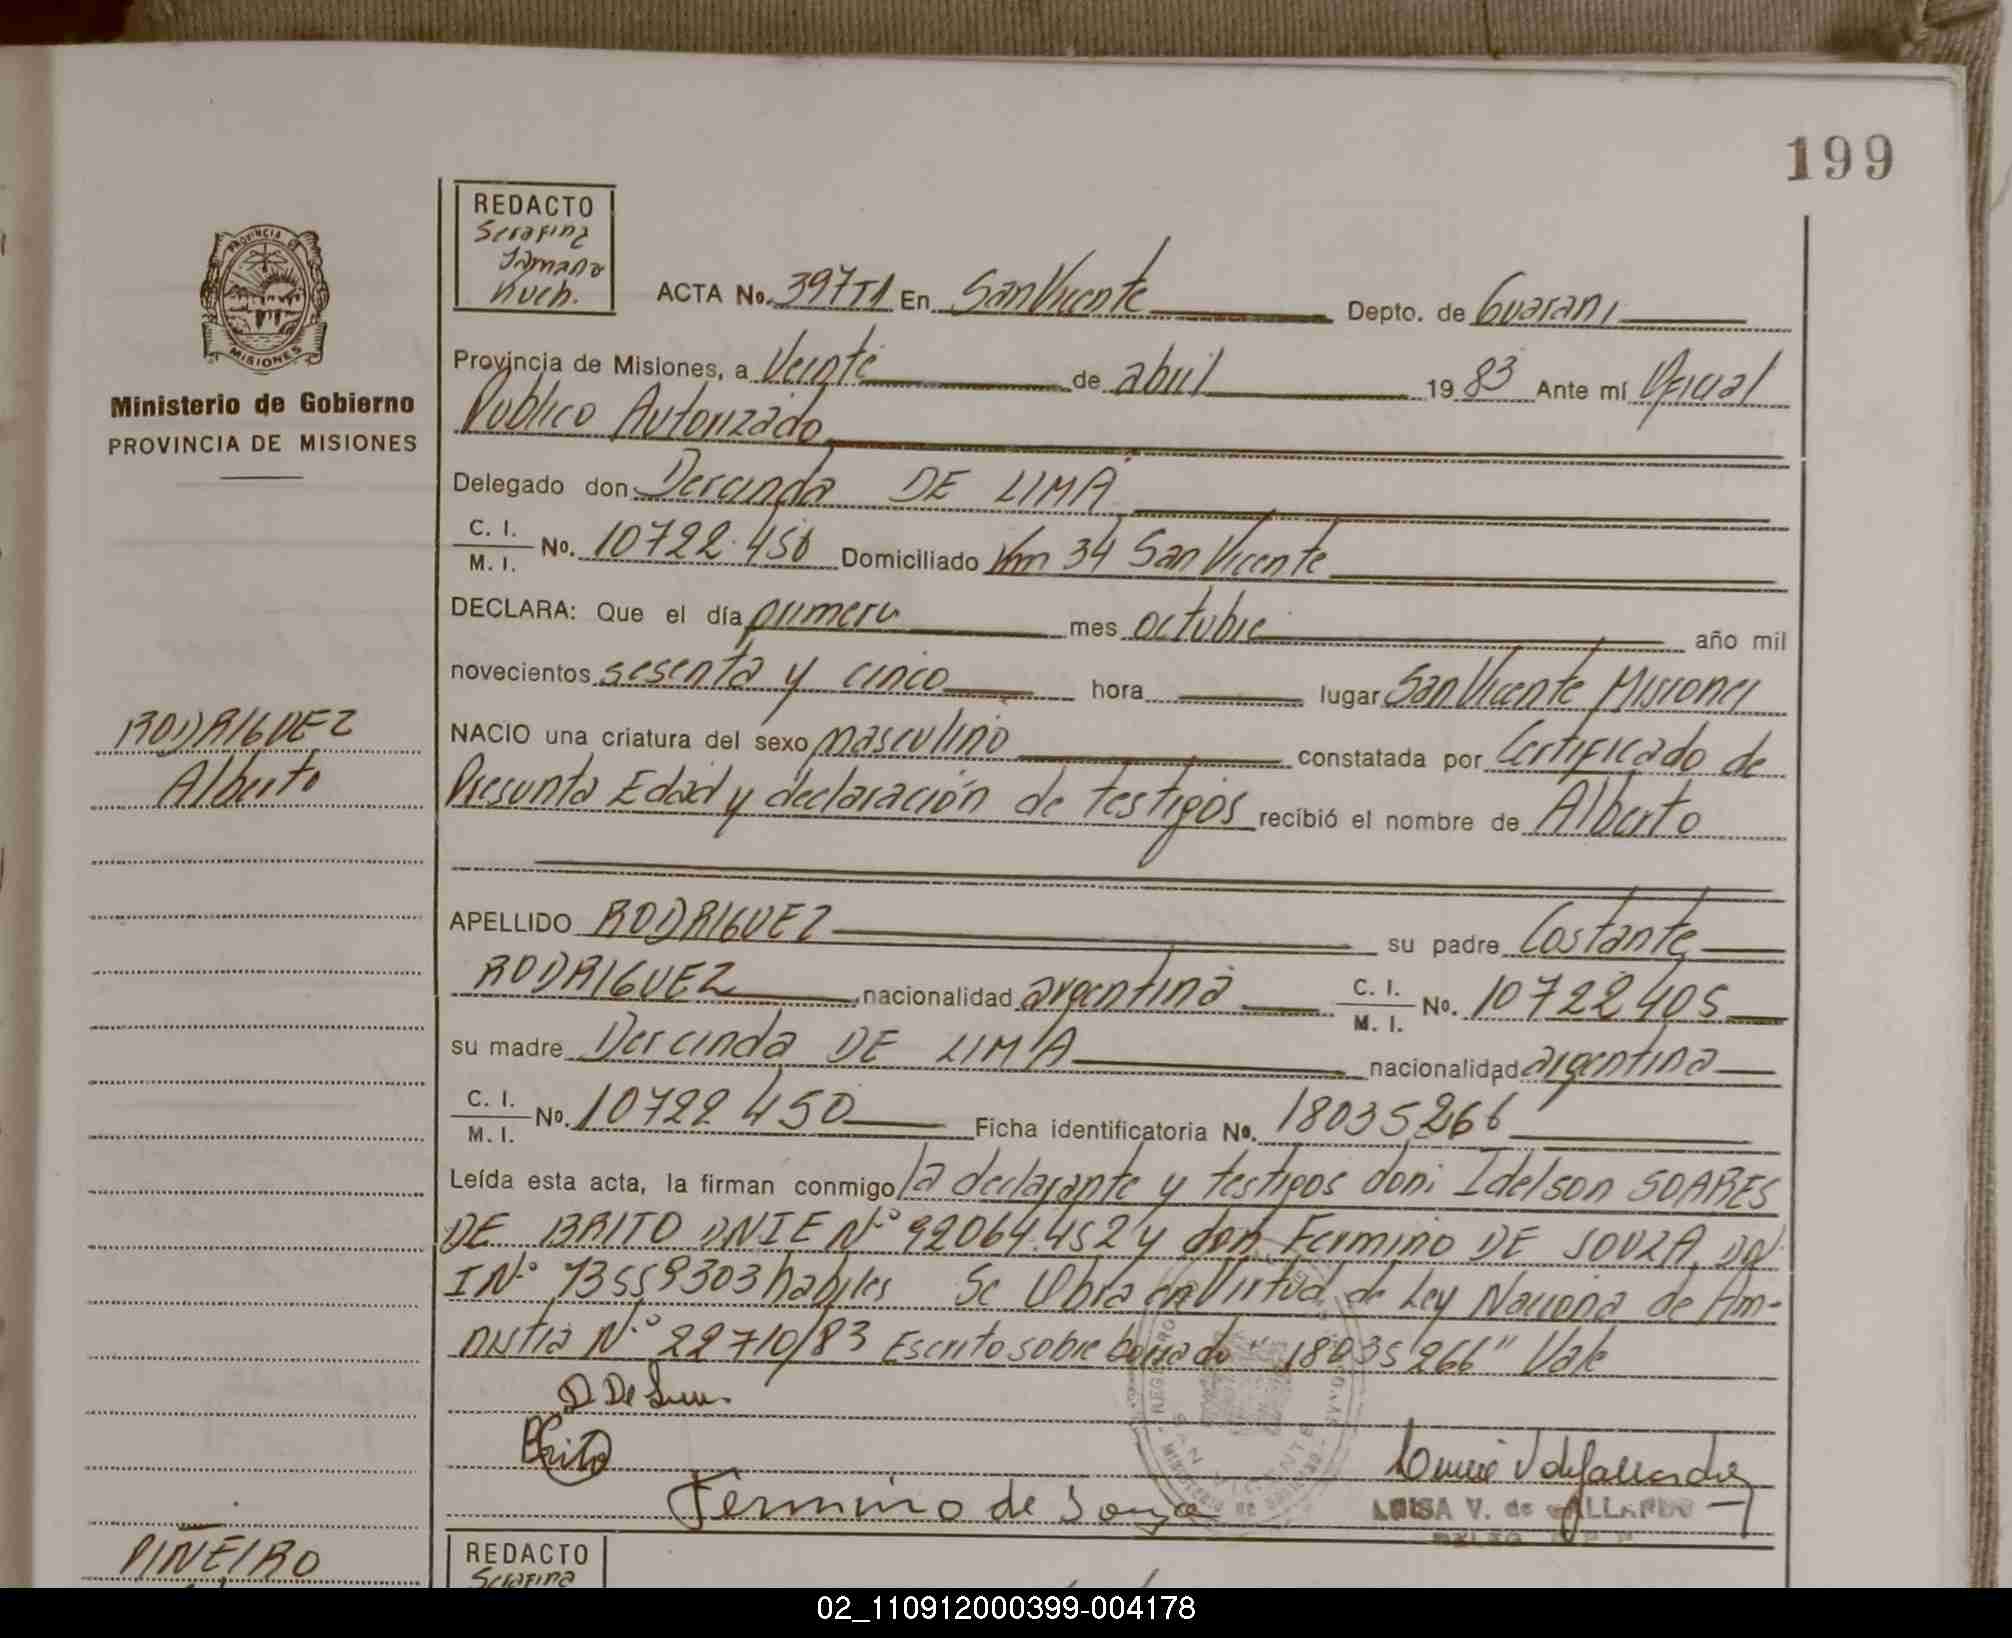 199
REDACTO
Serafina
Kuch.
PROVINCIA DE
MISIONES
Ministerio de Gobierno
PROVINCIA DE MISIONES
ACTA No. 397T1 En San Vicente Depto. de Guarani
Provincia de Misiones, a Veinte de abril 1983 Ante mí Oficial
Publico Autorizado
Delegado don Dercinda DE LIMA
C. I.
M. I. No. 10722.450 Domiciliado Km 34 San Vicente
DECLARA: Que el día primero mes octubre año mil
novecientos sesenta y cinco hora lugar San Vicente Misiones
RODRIGUEZ
Alberto
NACIO una criatura del sexo masculino constatada por Certificado de
Presunta Edad y declaración de testigos recibió el nombre de Alberto
APELLIDO RODRIGUEZ su padre Costante
RODRIGUEZ nacionalidad argentina C. I. M. I. No. 10722405
su madre Dercinda DE LIMA nacionalidad argentina
C. I.
M. I. No. 10722450 Ficha identificatoria No. 18035266
Leída esta acta, la firman conmigo la declarante y testigos don: Idelson SOARES
DE BRITO DNIE Nº 92064.452 y don Fermino DE SOUZA, DN
I Nº 73559303 habiles Se Obra en Virtud de Ley Naciona de Am-
nistia Nº 22710/83 Escrito sobre borrado "18035266" Vale
D De Lima
Brito
Fermino de Souza
LUISA V. de GALLARDO
PIÑEIRO
REDACTO
Serafina
02_110912000399-004178